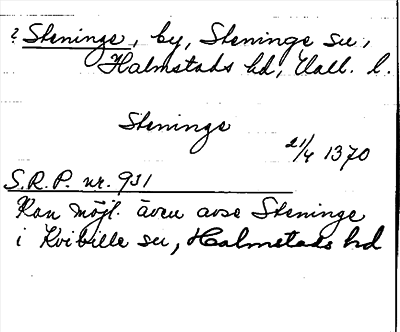 ? Steninge, by, Steninge sn,
Halmstads hd, Hall. l.
Steninge
21/4 1370
S.R.P. nr. 931
Kan möjl. även avse Steninge
i Kvibille sn, Halmstads hd